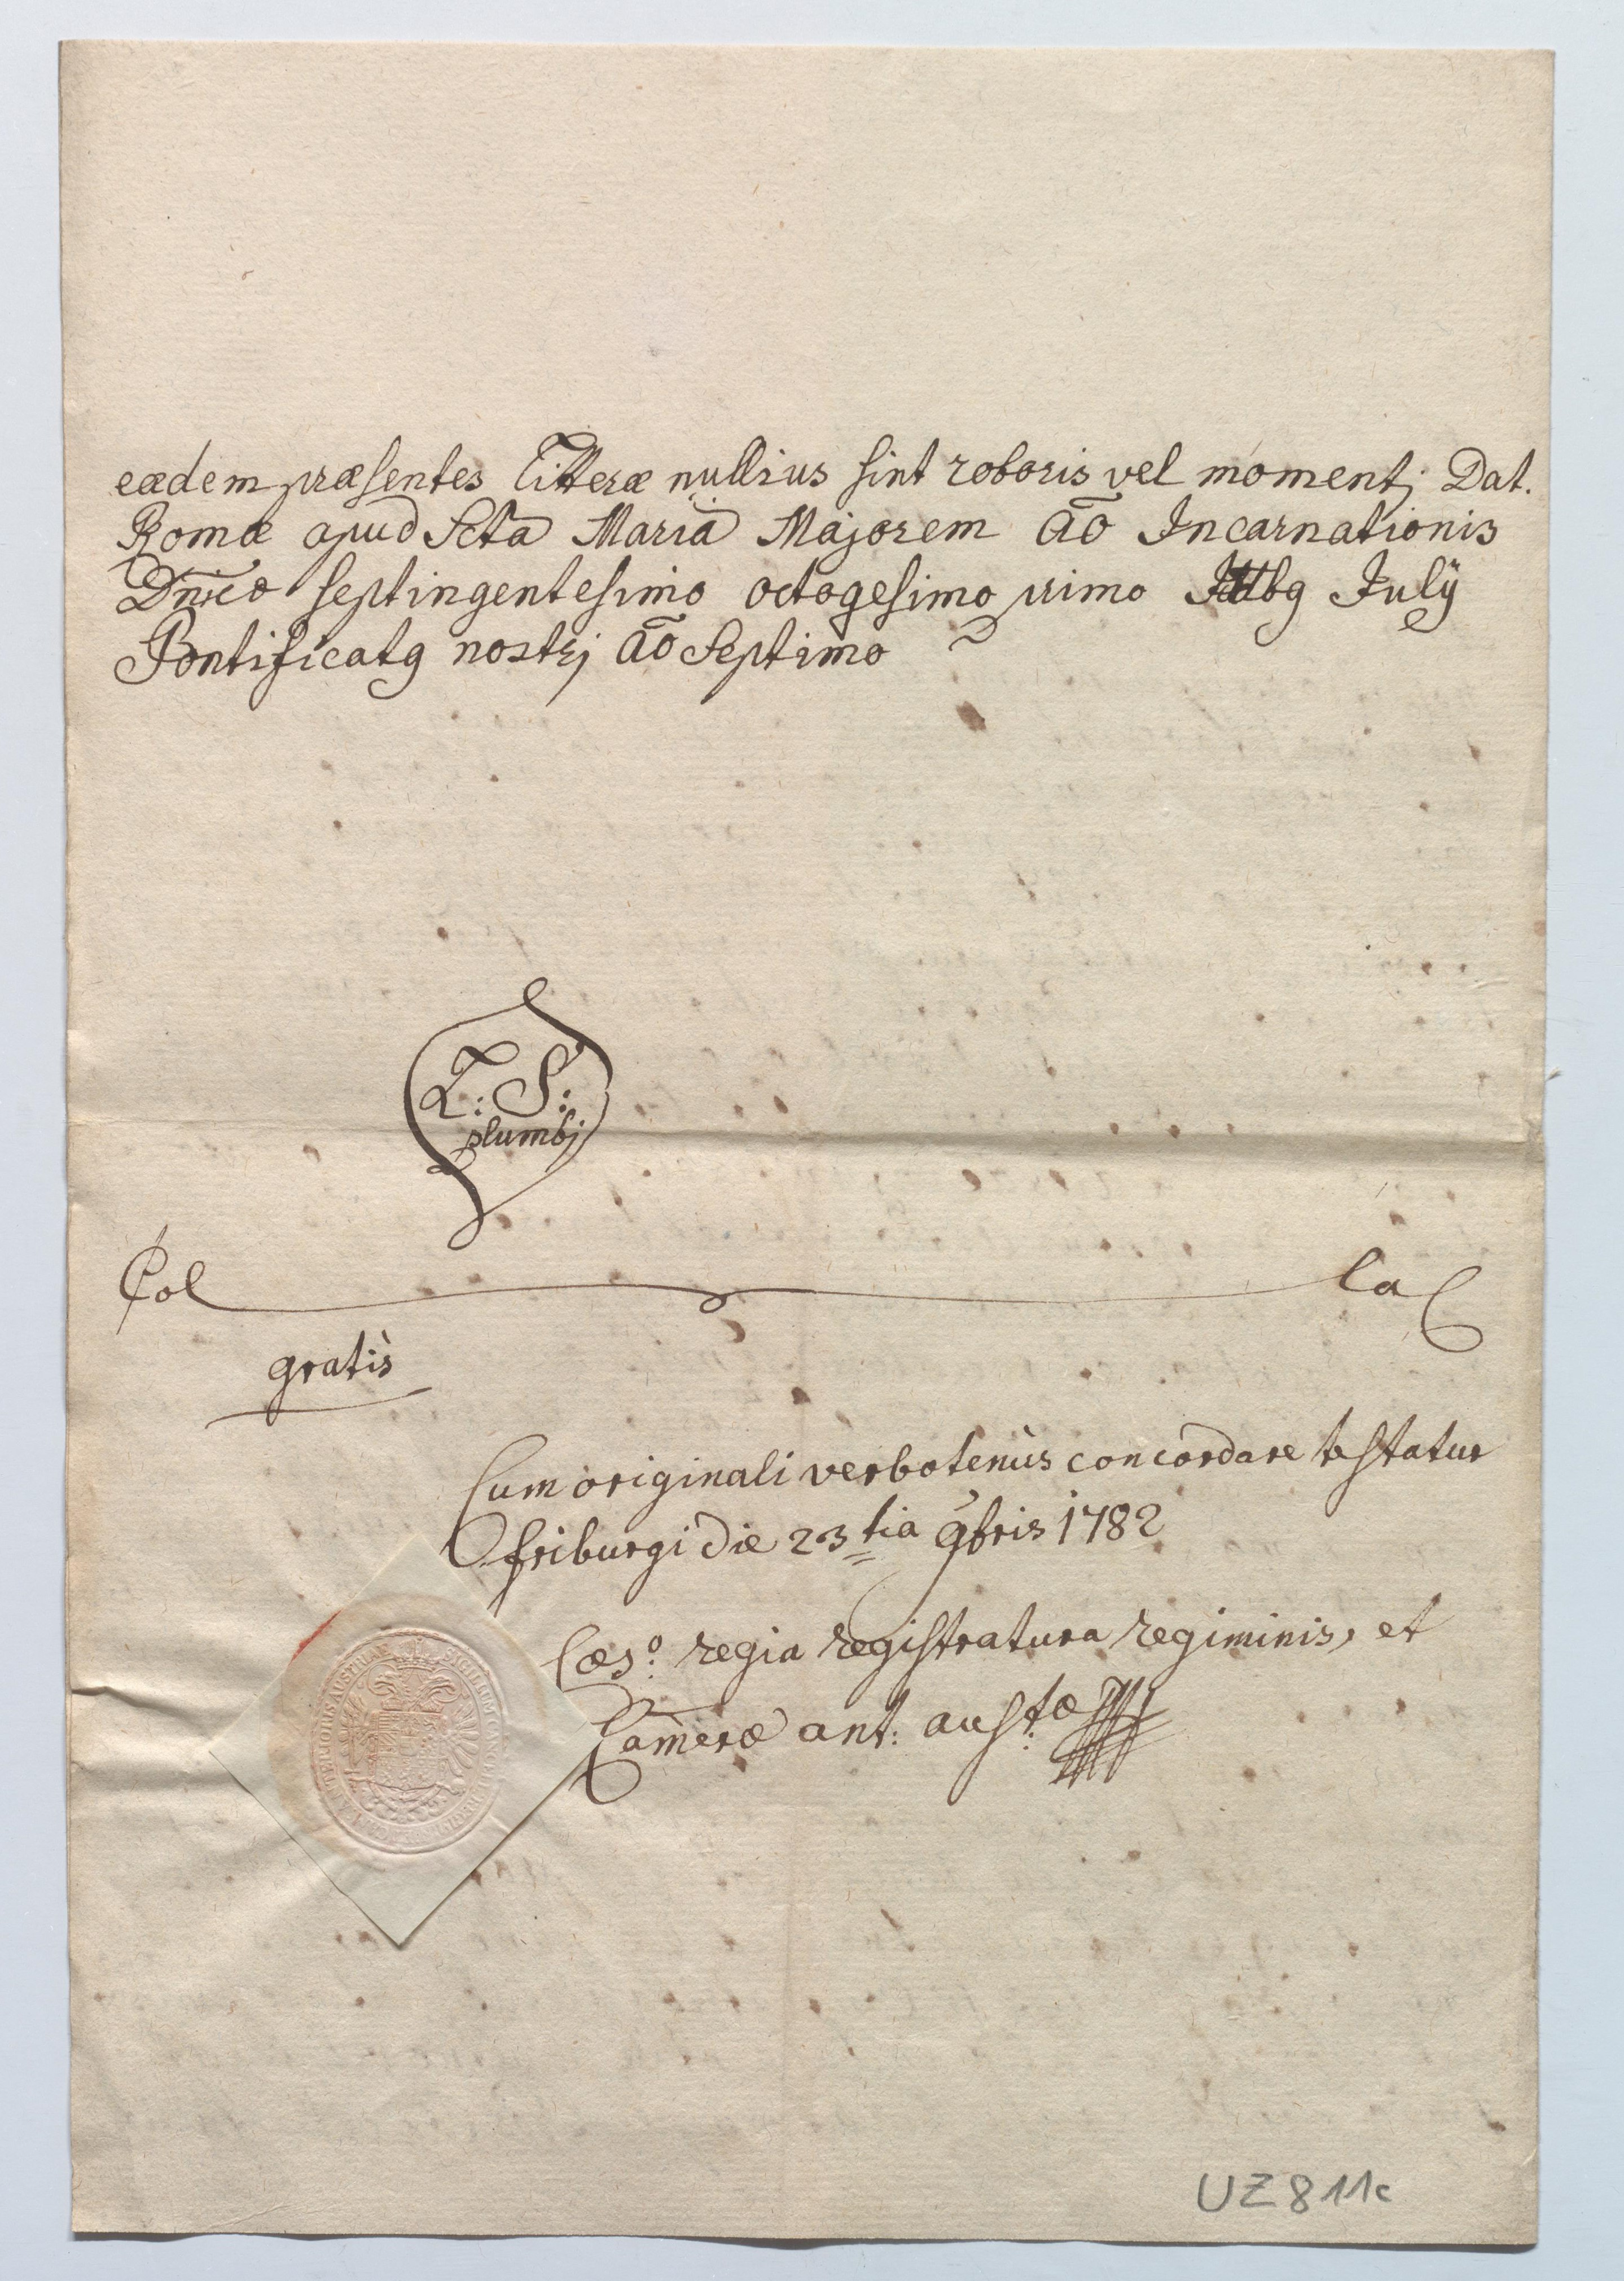 eædem præsentes Litteræ nullius sint roboris vel momentj Dat.
Romæ apud Sctā Mariā Majorem Āō Incarnationis
Dnicæ septingentesimo octogesimo primo Idibq July
Pontificatq nostrj āō Septimo
L: S:
plumbj
Col la
gratis
Cum originali verbotenùs concordare testatur
friburgi die 23tia 9bris 1782
Cæsº: regia registratura regiminis, et
Cameræ ant: aust:æ
UZ 811c